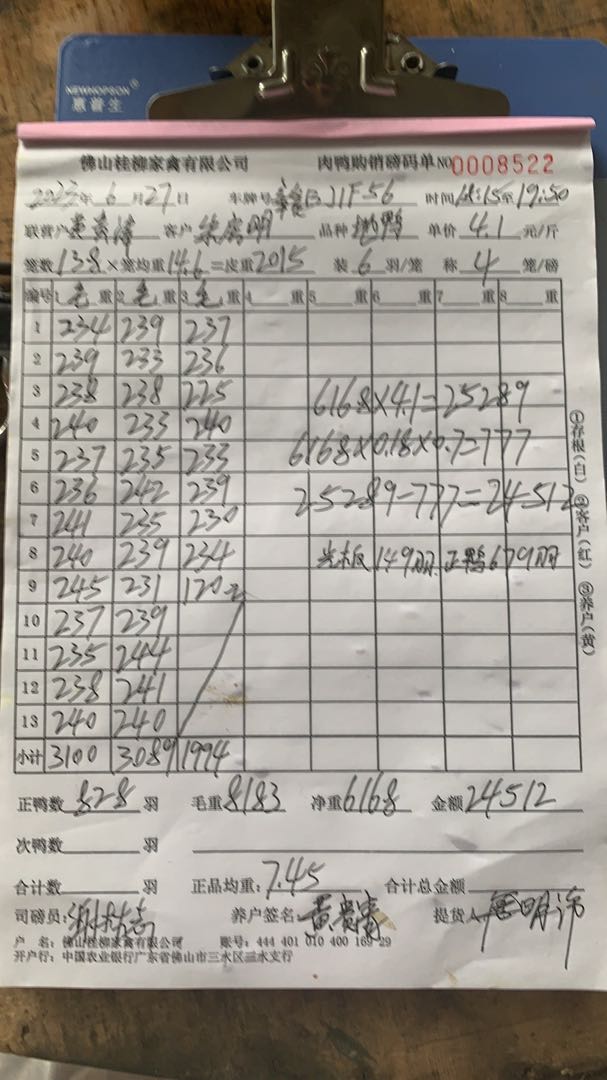 NEWHOPSON®
惠普生
佛山桂柳家禽有限公司 肉鸭购销磅码单NO 0008522
2023年6月27日 车牌号 J1F56 时间 18:15至19:50
联营户 客户 朱 明 品种 鸭 单价 4.1 元/斤
笼数 138 ×笼均重 14.6 =皮重 2015 装 6 羽/笼 称 4 笼/磅
编号 1 毛 重 2 毛 重 3 毛 重 4 重 5 重 6 重 7 重 8 重
1 234 239 237
2 239 233 236
3 238 238 225 6168×4.1=25289
4 240 233 240
5 237 235 233 6168×0.18×0.7=777
6 236 242 239 25289-777=24512
7 241 235 230
8 240 239 234 光板 149羽 正鸭679羽
9 245 231 120
10 237 239
11 235 244
12 238 241
13 240 240
小计 3100 3089 1994
正鸭数 828 羽 毛重 8183 净重 6168 金额 24512
次鸭数 羽
合计数 羽 正品均重: 7.45 合计总金额
司磅员: 志 养户签名: 黄 提货人 明
户 名: 佛山桂柳家禽有限公司 账号: 444 401 010 400 169 29
开户行: 中国农业银行广东省佛山市三水区三水支行
①存根(白) ②客户(红) ③养户(黄)